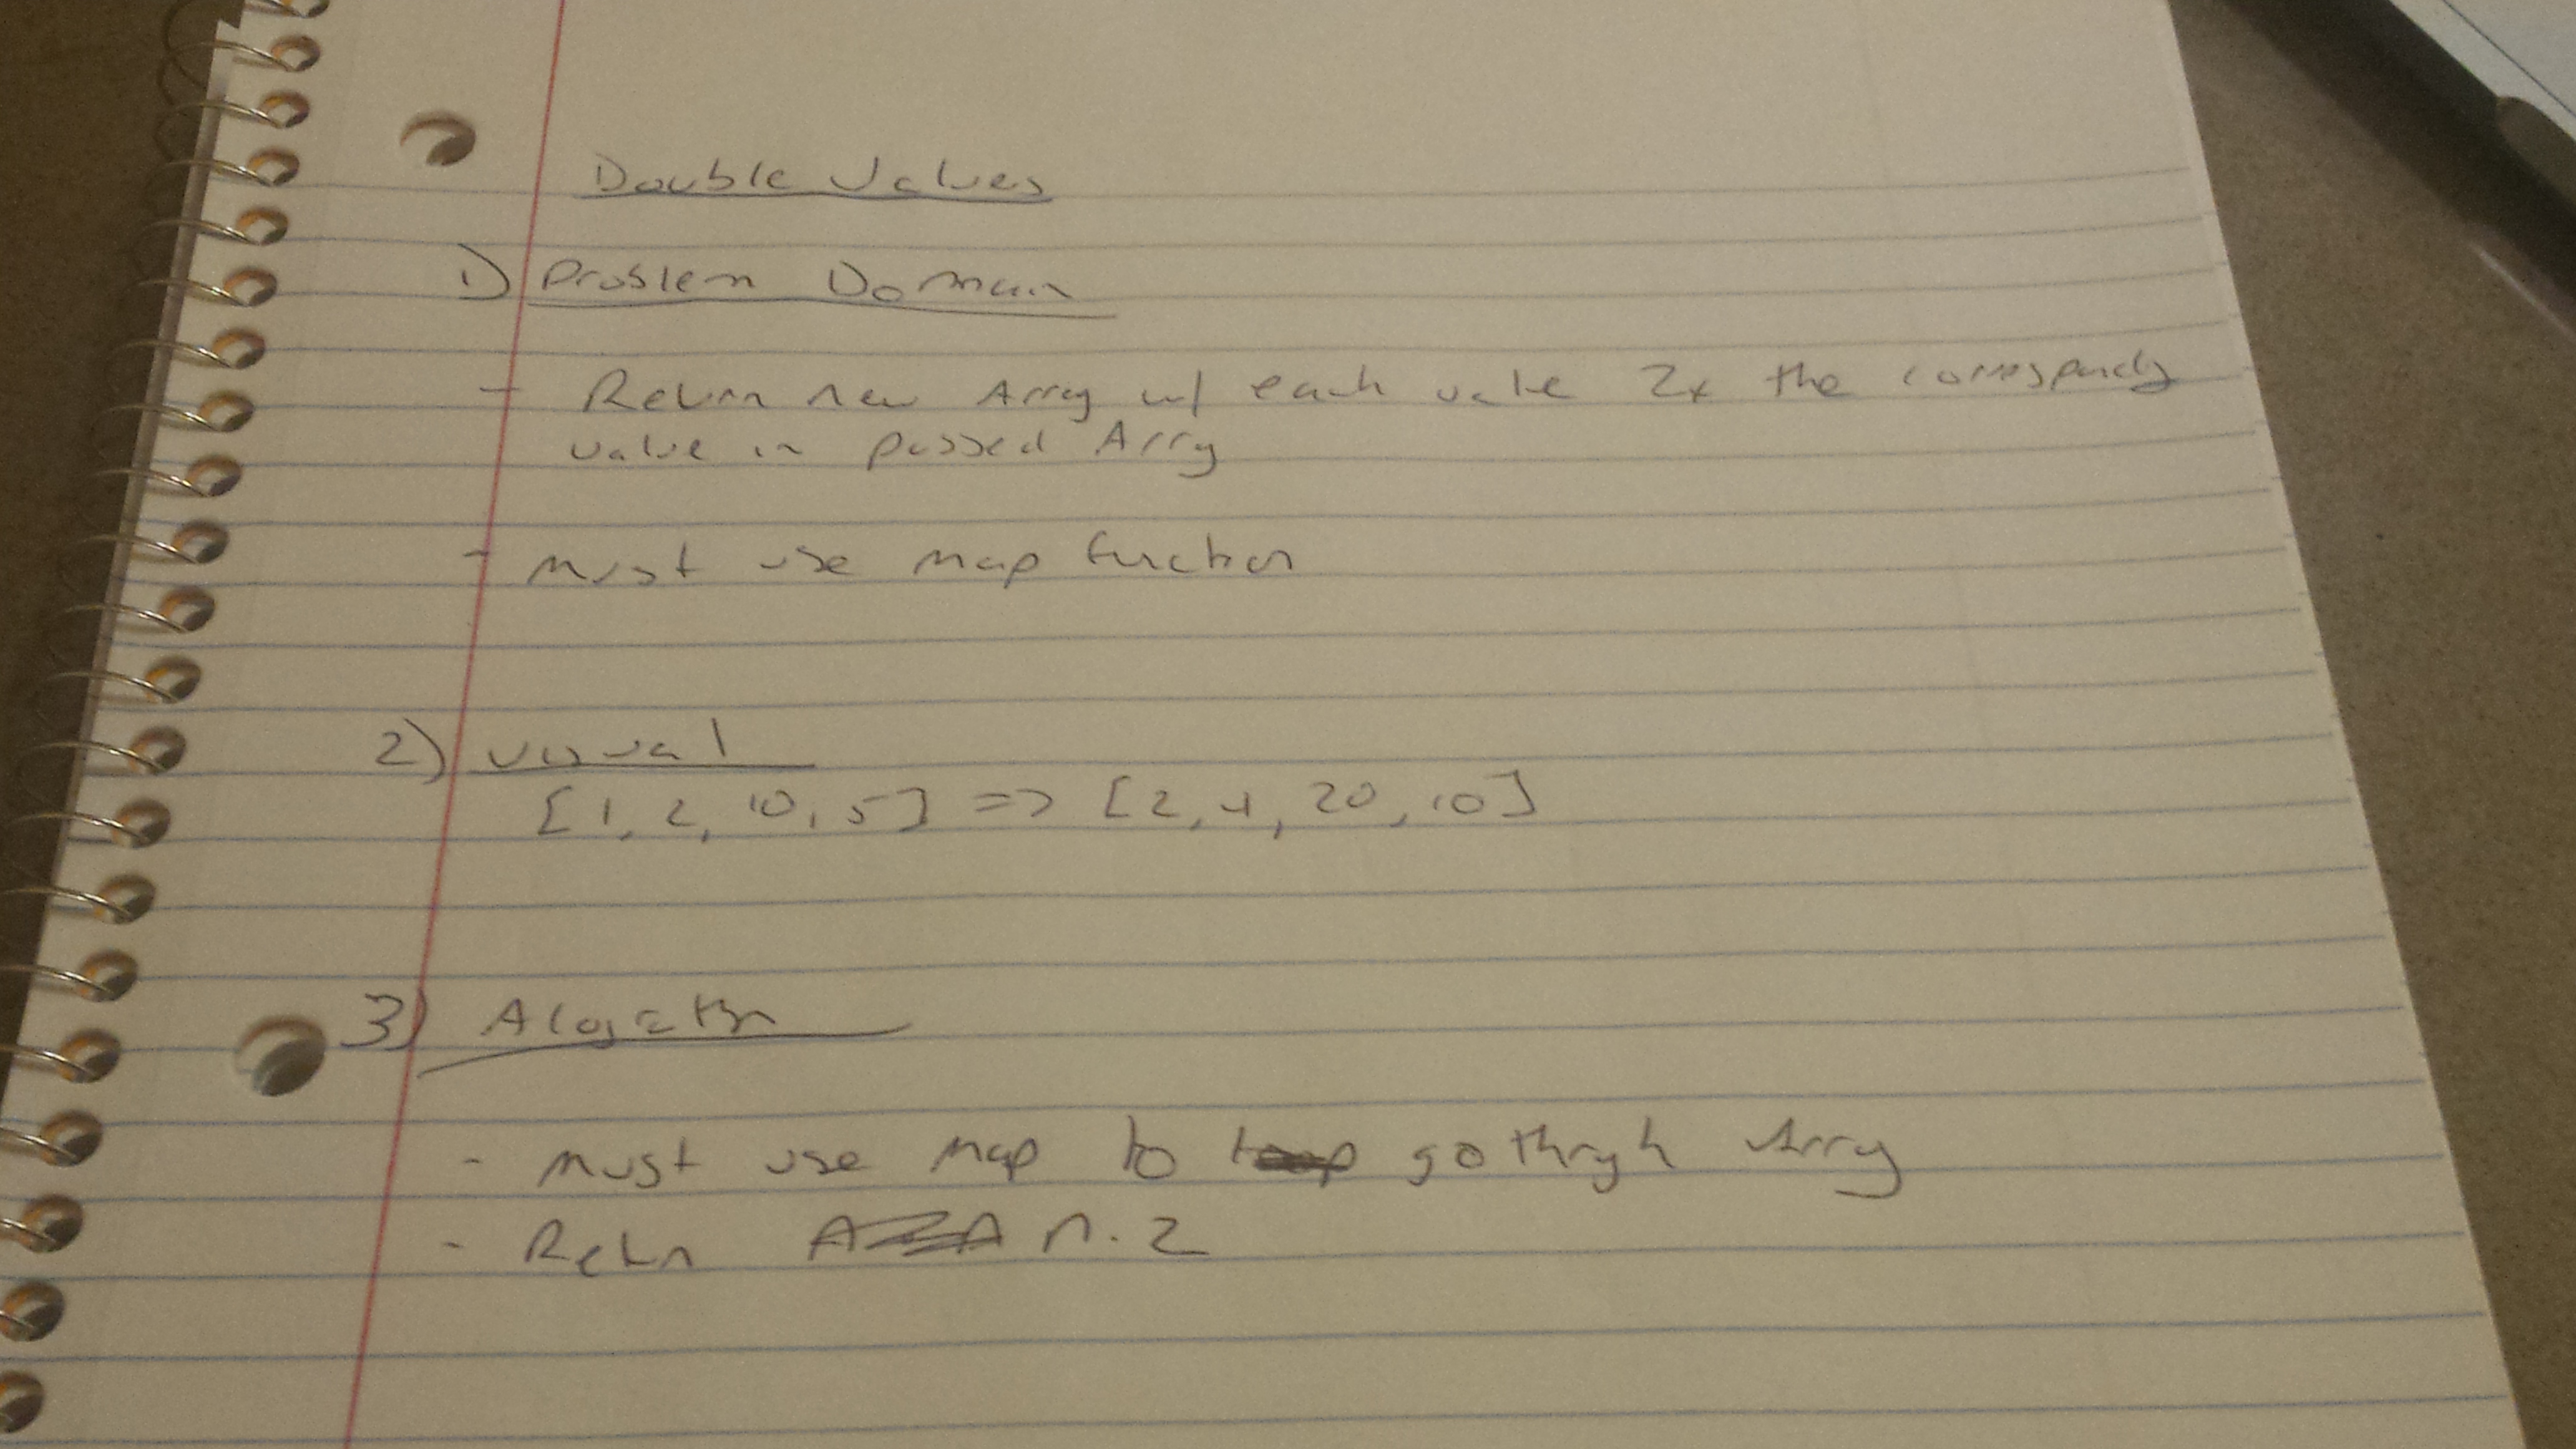 Double Values
1) Problem Domain
- Return new Array w/ each value 2x the corresponding
value in passed Array
- Must use map function
2) Visual
[1, 2, 10, 5] => [2, 4, 20, 10]
3) Algorithm
- Must use map to go through Array
- Return n . 2